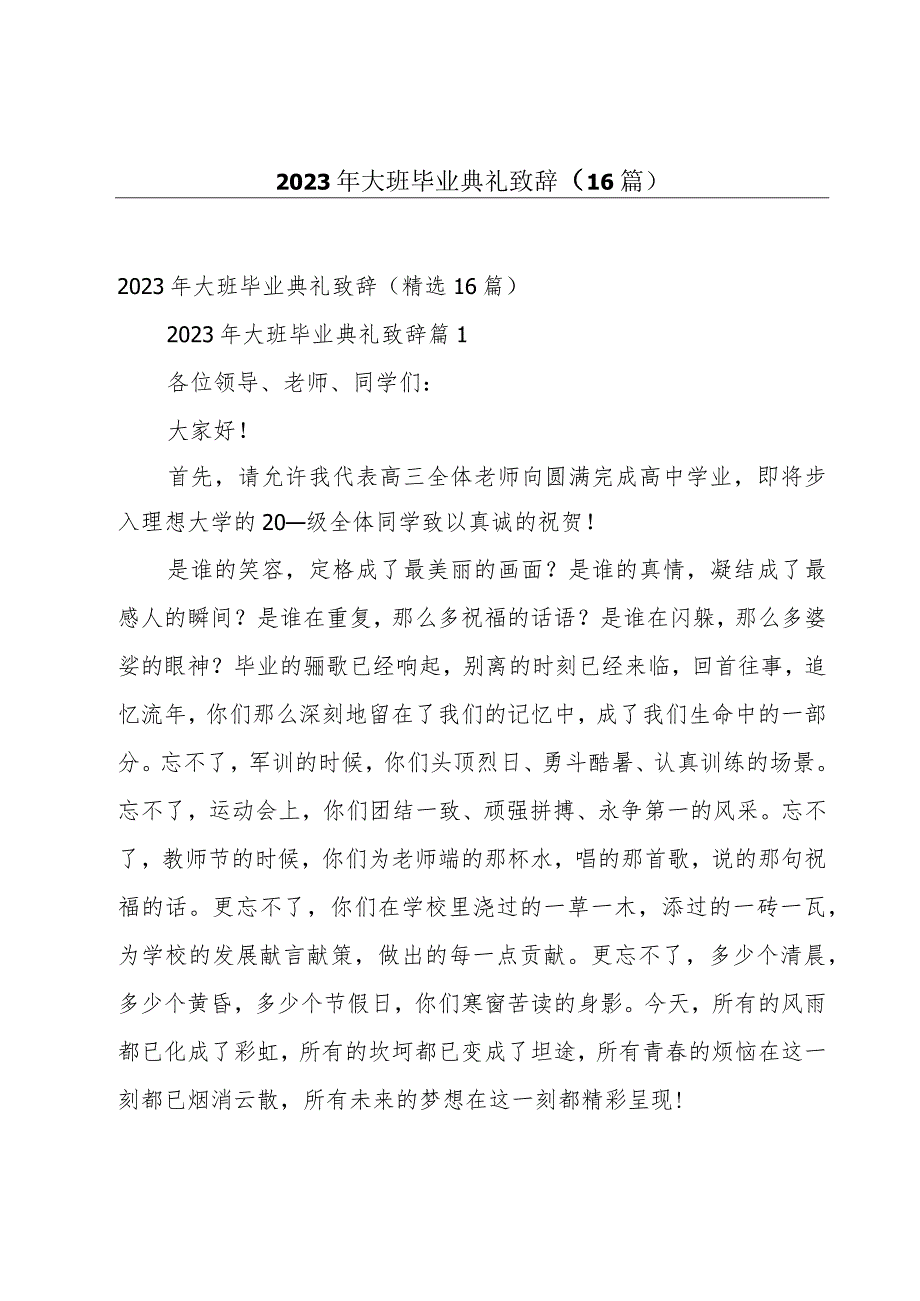 2023 年大班毕业典礼致辞（16 篇）
2023 年大班毕业典礼致辞（精选 16 篇）
2023 年大班毕业典礼致辞篇 1
各位领导、老师、同学们：
大家好！
首先，请允许我代表高三全体老师向圆满完成高中学业，即将步
入理想大学的 20—级全体同学致以真诚的祝贺！
是谁的笑容，定格成了最美丽的画面？是谁的真情，凝结成了最
感人的瞬间？是谁在重复，那么多祝福的话语？是谁在闪躲，那么多婆
娑的眼神？毕业的骊歌已经响起，别离的时刻已经来临，回首往事，追
忆流年，你们那么深刻地留在了我们的记忆中，成了我们生命中的一部
分。忘不了，军训的时候，你们头顶烈日、勇斗酷暑、认真训练的场景。
忘不了，运动会上，你们团结一致、顽强拼搏、永争第一的风采。忘不
了，教师节的时候，你们为老师端的那杯水，唱的那首歌，说的那句祝
福的话。更忘不了，你们在学校里浇过的一草一木，添过的一砖一瓦，
为学校的发展献言献策，做出的每一点贡献。更忘不了，多少个清晨，
多少个黄昏，多少个节假日，你们寒窗苦读的身影。今天，所有的风雨
都已化成了彩虹，所有的坎坷都已变成了坦途，所有青春的烦恼在这一
刻都已烟消云散，所有未来的梦想在这一刻都精彩呈现！